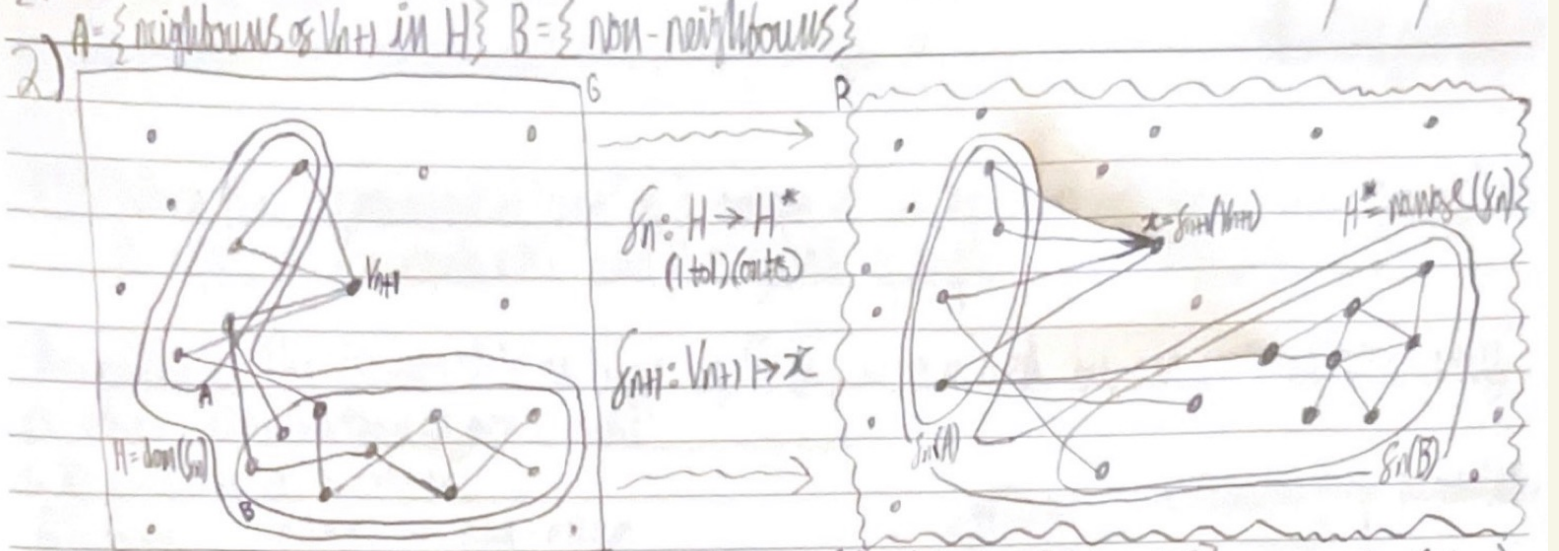 A={neighbours of Vn+1 in H} B={non-neighbours}
2)
G
R
Vn+1
A
H=dom(fn)
B
fn: H→H*
(1 to 1)(onto)
fn+1: Vn+1↦x
x=fn+1(Vn+1)
H*=range(fn)
fn(A)
fn(B)